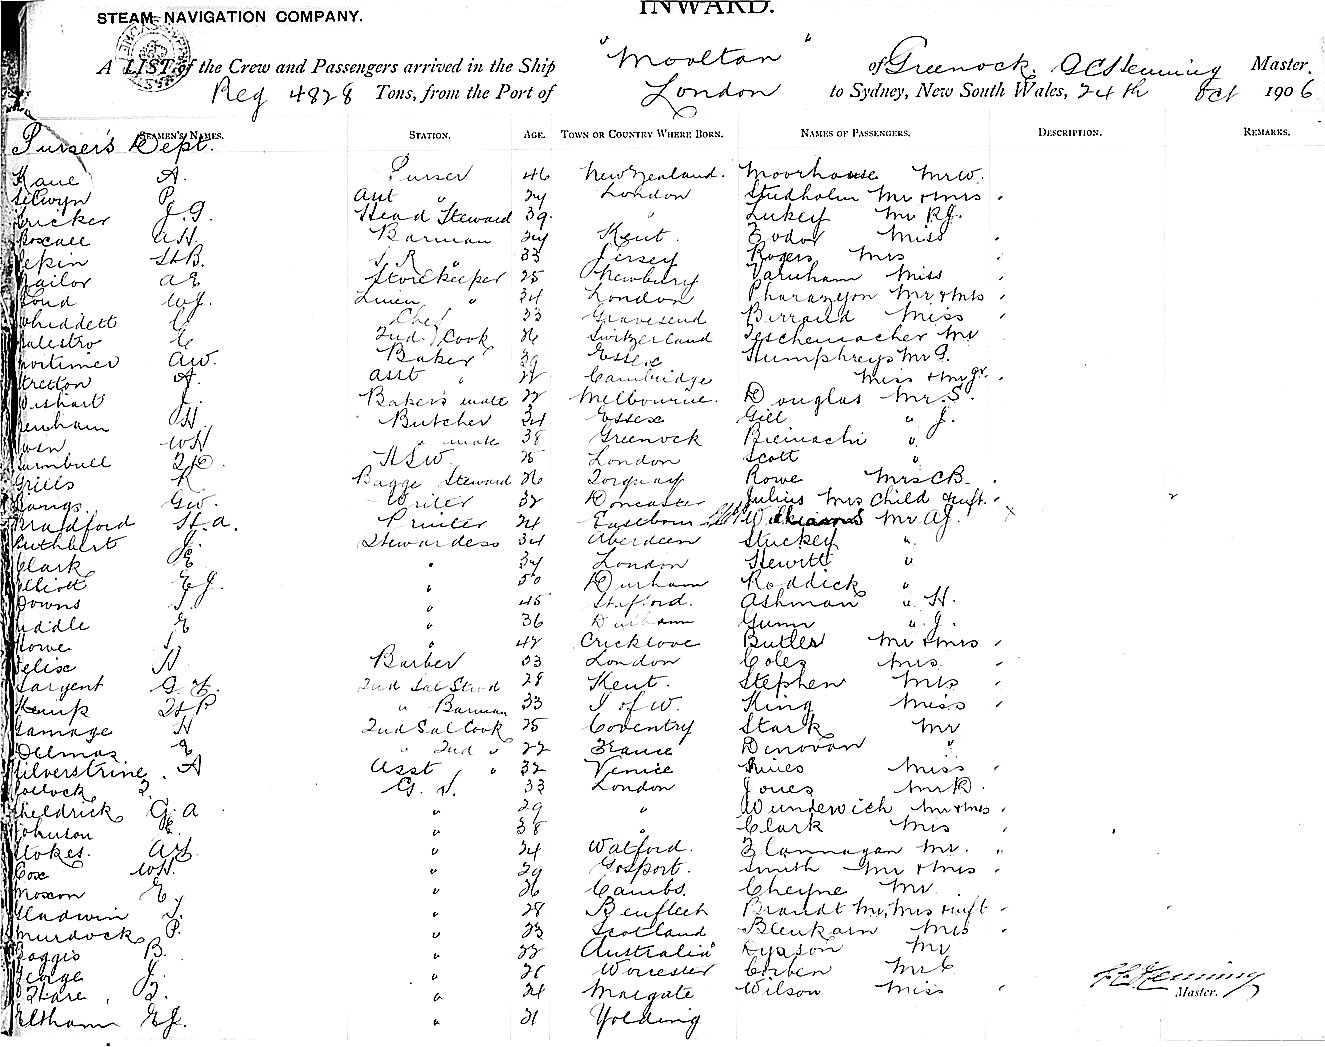 STEAM NAVIGATION COMPANY.
INWARD.
A LIST of the Crew and Passengers arrived in the Ship "Moolton" of Greenock, A C Henning Master,
Reg 4828 Tons, from the Port of London to Sydney, New South Wales, 24th Oct 1906
SEAMEN'S NAMES. STATION. AGE. TOWN OR COUNTRY WHERE BORN. NAMES OF PASSENGERS. DESCRIPTION. REMARKS.
Purser's Dept.
Kane A. Purser 46 New Zealand. Moorhouse Mr W.
Selwyn P. Asst " 24 London Studholm Mr & Mrs
J. G. Head Steward 39 " Lukey Mr R J.
A H. Barman 24 Kent. Miss
St B. S. R " 33 Jersey Rogers Mrs
A E Storekeeper 25 Newbury Miss
W J. Linen " 34 London Pharazyn Mr & Mrs
Whiddett C Chef 33 Gravesend Barraud Miss
Balestro C 2nd Cook 26 Switzerland Teschemacher Mr
Mortimer A W. Baker 39 Essex Humphreys Mr G.
Stretton A. Asst " Cambridge Miss & Mr Jr.
Wishart J. Baker's mate 22 Melbourne. Douglas Mr S.
H. Butcher 34 Essex Gill " J.
W H " mate 38 Greenock "
Turnbull N S W. 25 London Scott "
Grills R Bagge Steward 26 Torquay Rowe Mrs C B.
Bangs G W. Writer 32 Doncaster Julius Mrs Child & Inft.
Bradford St. A. Printer 24 Eastbourn Williams Mr A J.
Cuthbert J. Stewardess 34 Aberdeen Stuckey "
Clark E " 34 London Hewitt "
Elliott E J. " 50 Durham Roddick "
Downs " 45 Stafford. Ashman " H.
Liddle E " 36 Durham Gunn " J.
" 42 Cricklove Butler Mr & Mrs
Felix H Barber 33 London Coles Mrs
Sargent G 2nd Sal Strd 28 Kent. Stephen Mrs
Kemp " Barman 33 I of W. King Miss
Gamage H 2nd Sal Cook 25 Coventry Stark Mr
Delmas " 2nd " 22 France Donovan "
Silverstrine A Asst " 32 Venice Miss
Pollock G. S. 33 London Jones Mr D.
Sheldrick G. A " 29 " Wunderwich Mr & Mrs
Johnson E " 38 " Clark Mrs
Stokes. " 24 Watford. Flannagan Mr.
Cox W H. " 29 Gosport. Smith Mr & Mrs
Moxon E. " 26 Cambs. Cheyne Mr
Gladwin " 28 Benfleet Brandt Mr, Mrs & Inft
Murdock P. " 23 Scotland Blenkarn Mrs
Baggis B. " 22 Australia Mr
George J. " Worcester Corben Mr C
" 24 Margate Wilson Miss
Eltham E J. " 21 Yolding
A C Henning
Master.